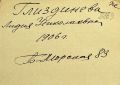 Глиздинева
Лидия Николаевна
1906г.
Б. Морская 83